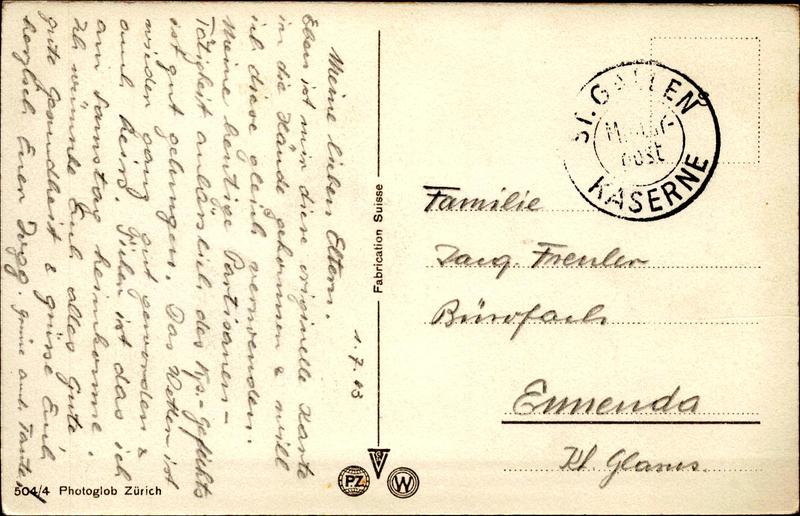 1.7.43
Meine lieben Eltern.
Eben ist mir diese originelle Karte
in die Hände gekommen & will
ich diese gleich verwenden.
Meine heutige Partisanen-
Tätigkeit anlässlich des Kp.-Gefechts
ist gut gelungen. Das Wetter ist
wieder ganz gut geworden &
auch heiss. Sicher ist das ich
am Samstag heimkomme.
Ich wünsche Euch alles Gute,
gute Gesundheit & grüsse Euch
herzlich Euer Jogg. Grüsse auch Tante
504/4 Photoglob Zürich
Fabrication Suisse
PZ
W
ST. GALLEN
Militär-
post
KASERNE
Familie
Jacq. Freuler
Bürofach
Ennenda
Kt. Glarus.